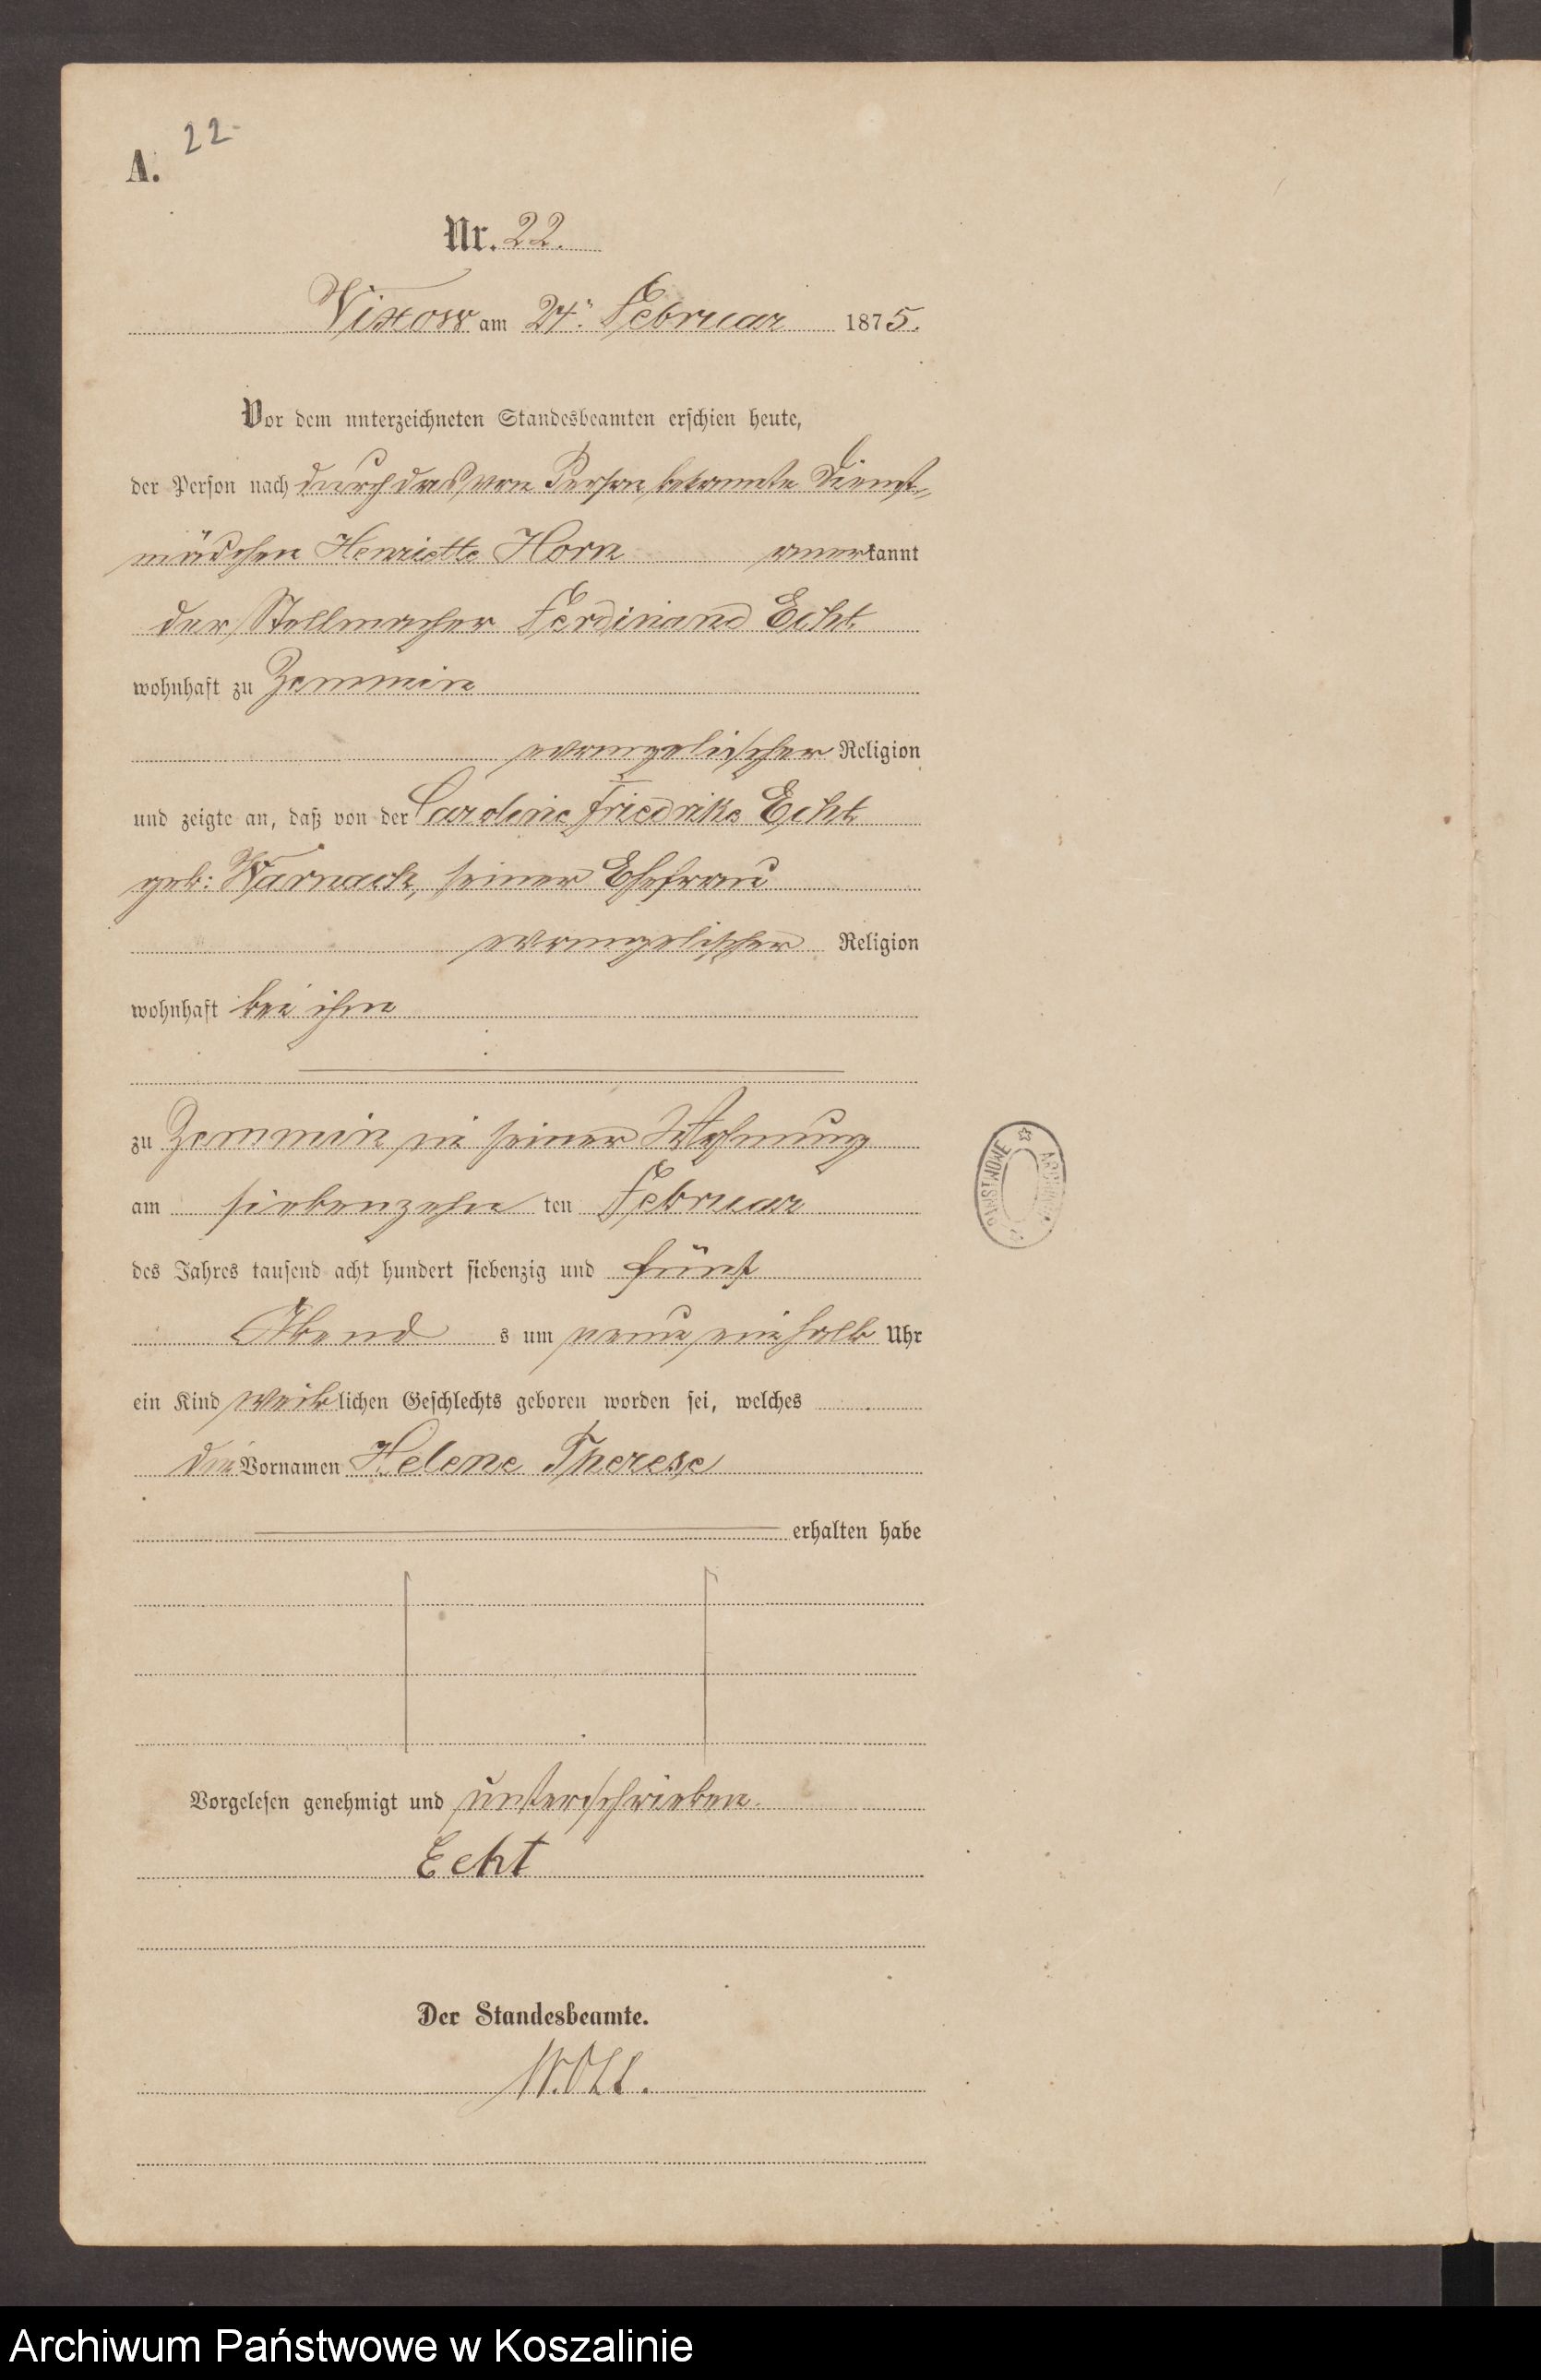 22
A.
Nr. 22.
Vixow am 24. Februar 1875.
Vor dem unterzeichneten Standesbeamten erschien heute,
der Person nach durch das, von Person bekannte Dienst-
mädchen Henriette Horn anerkannt
der Stellmacher Ferdinand Echt
wohnhaft zu Zemmin
evangelischer Religion
und zeigte an, daß von der Caroline Friedrike Echt
geb: Warnack, seiner Ehefrau
evangelischer Religion
wohnhaft bei ihm
zu Zemmin in seiner Wohnung
am siebenzehn ten Februar
des Jahres tausend acht hundert siebenzig und fünf
Abend s um neun ein halb Uhr
ein Kind weiblichen Geschlechts geboren worden sei, welches
die Vornamen Helene Therese
erhalten habe
Vorgelesen genehmigt und unterschrieben.
Echt
Der Standesbeamte.
ARCHIWUM PAŃSTWOWE
Archiwum Państwowe w Koszalinie